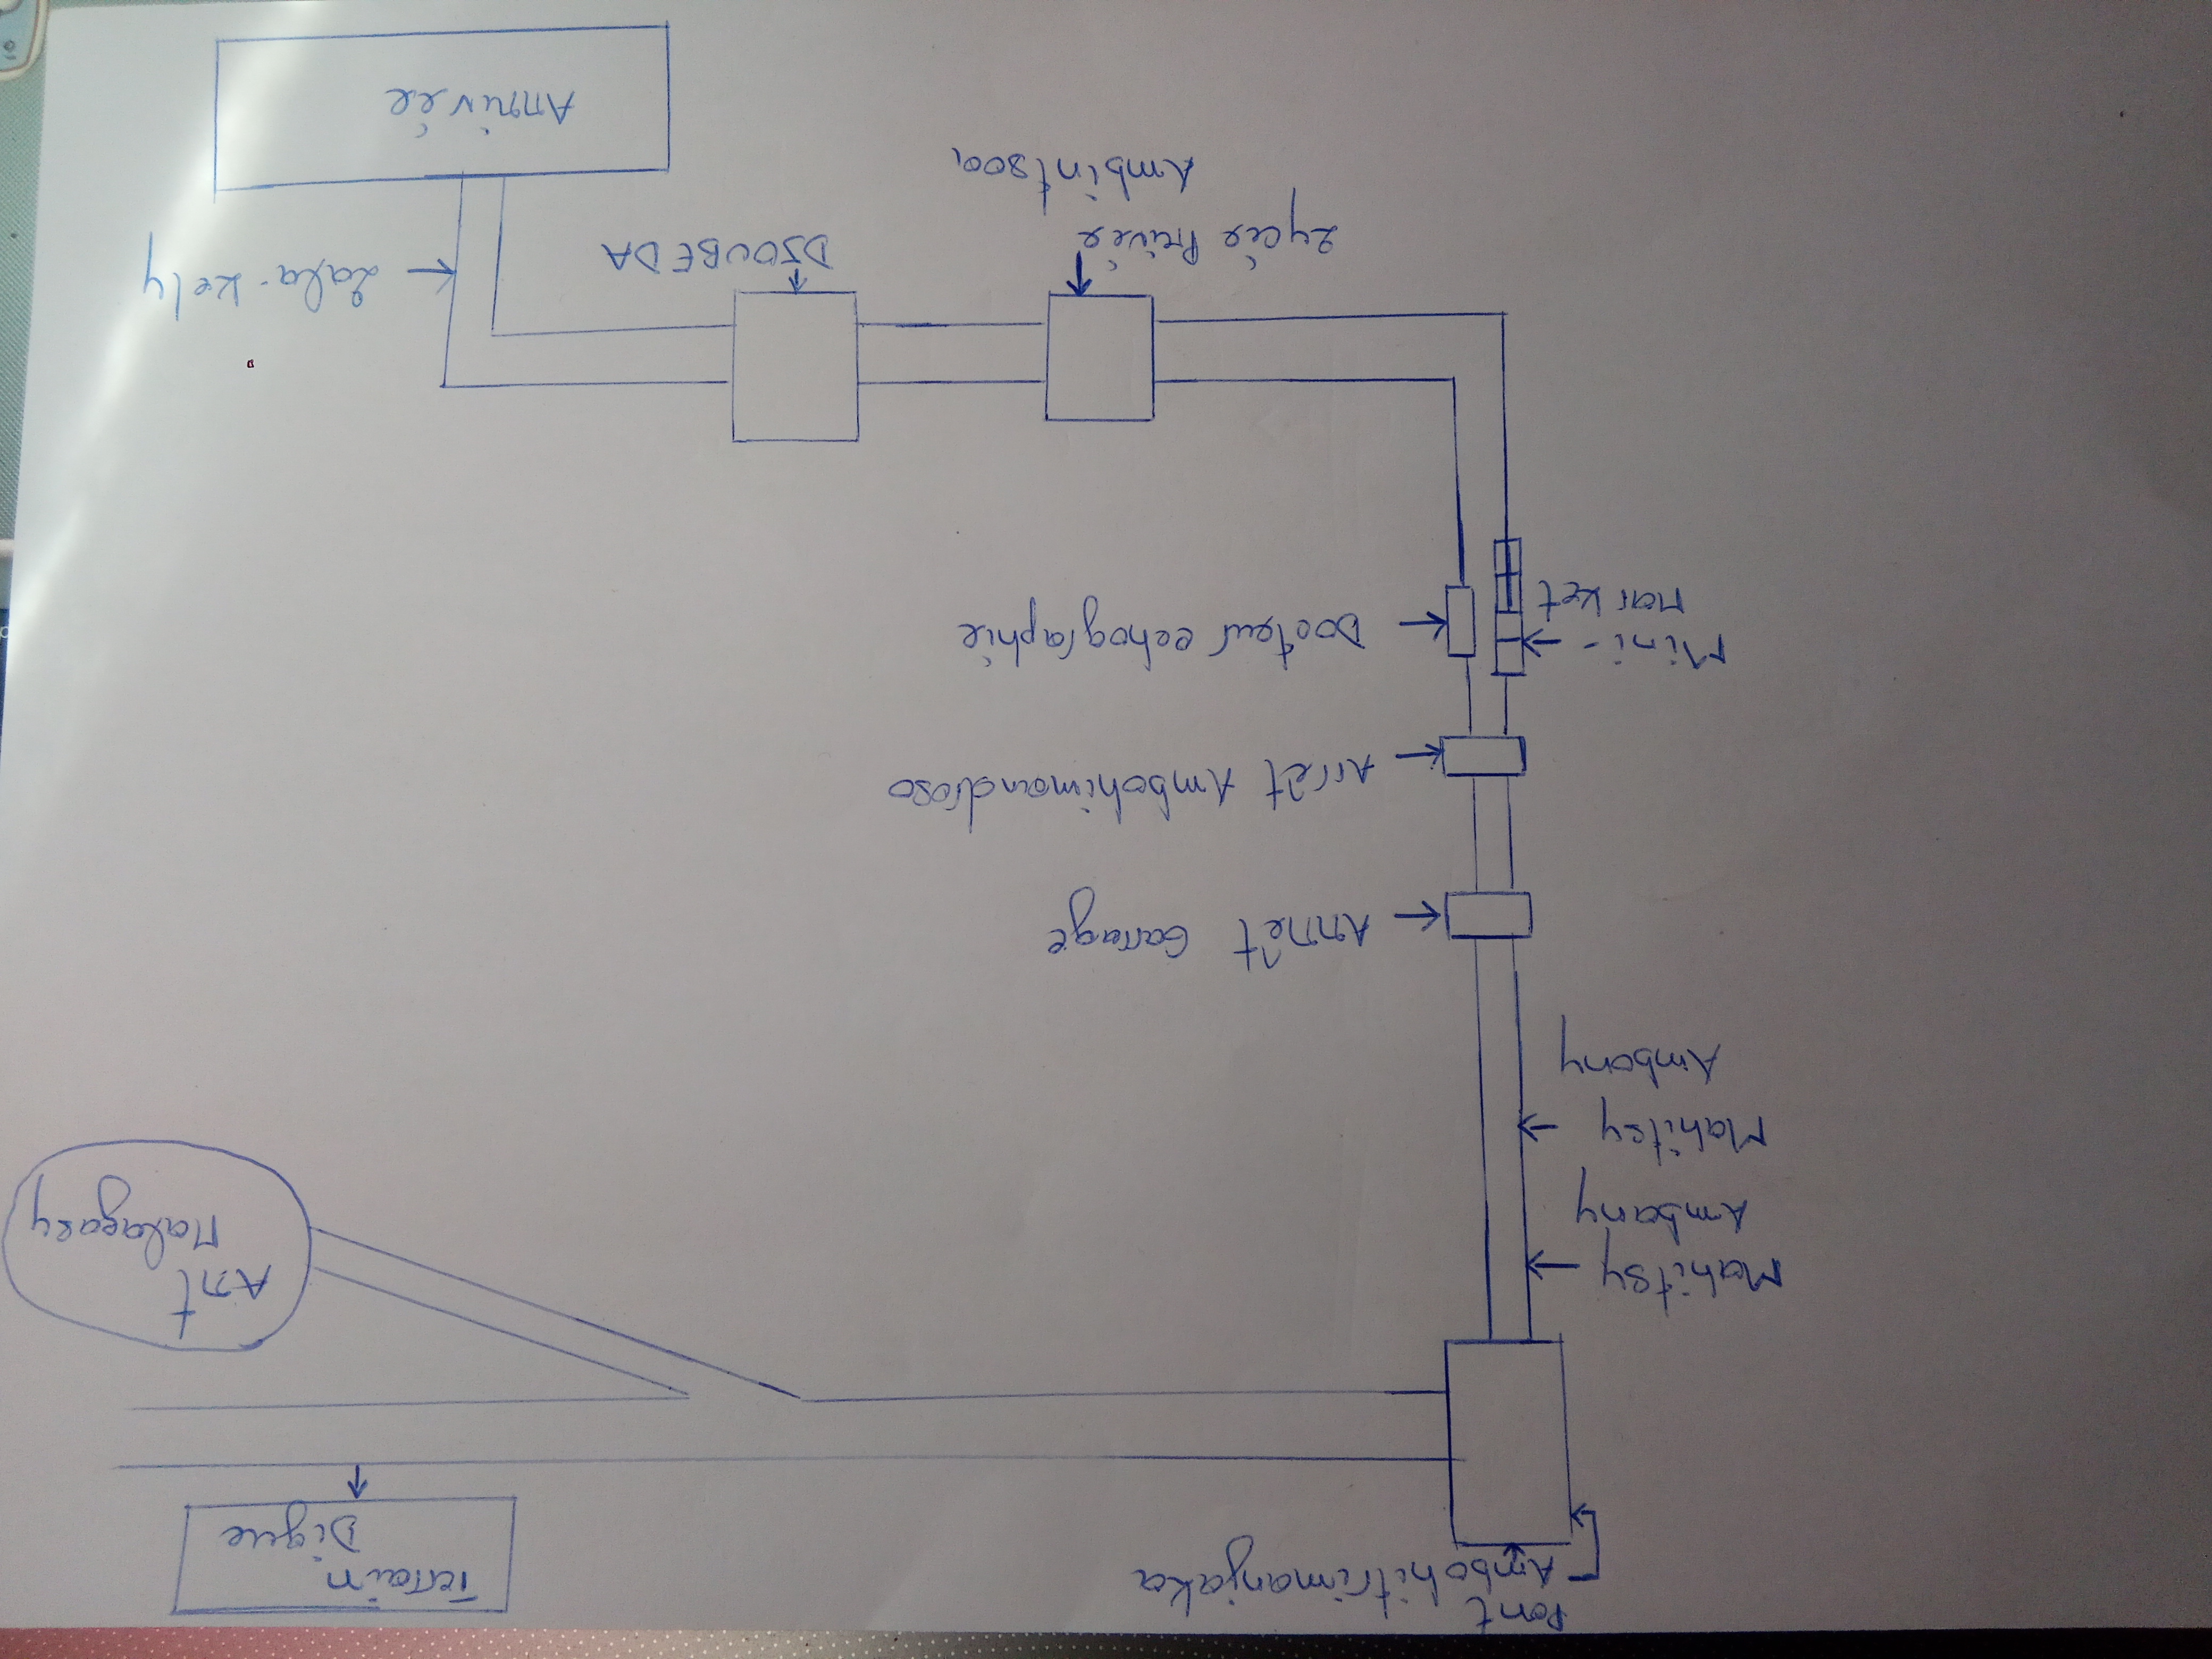 Pont
Ambohitrimanjaka
Terrain
Digue
Ant
Malagasy
Mahitsy
Ambany
Mahitsy
Ambony
Arrêt Garrage
Arrêt Ambohimandroso
Mini-
Market
Docteur echographie
Lycée Privée
Ambintsoa
DJOUBEDA
Lala-kely
Arrivée